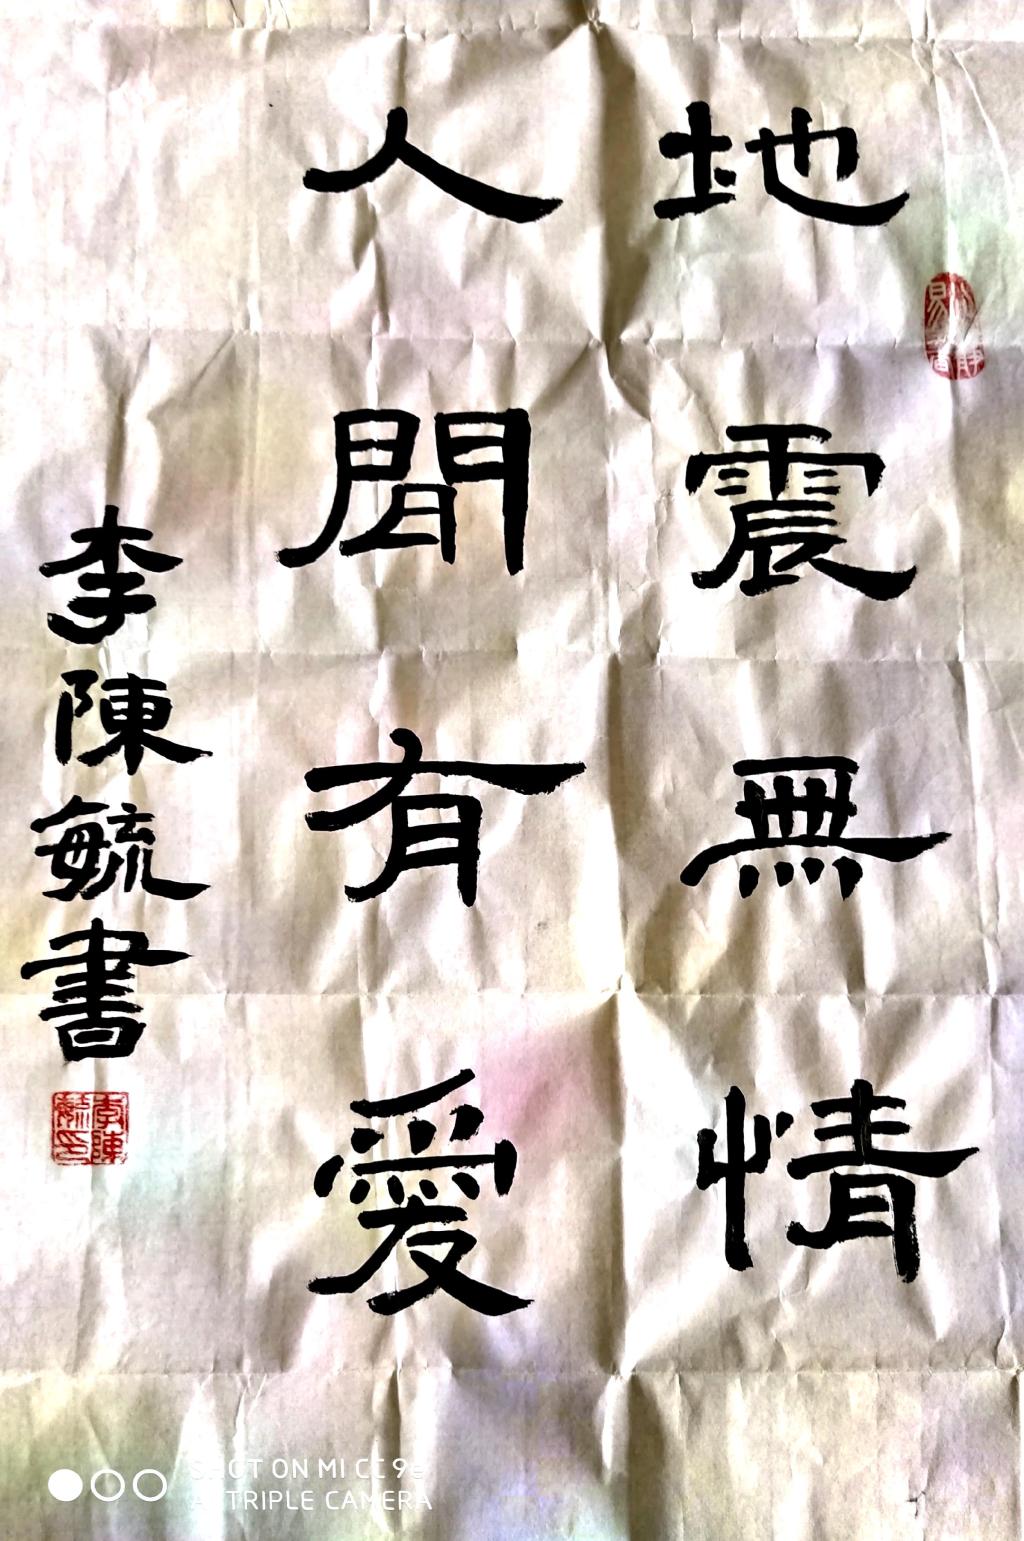 地震無情
人間有愛
李陳毓書
李陳毓印
SHOT ON MI CC 9e
AI TRIPLE CAMERA